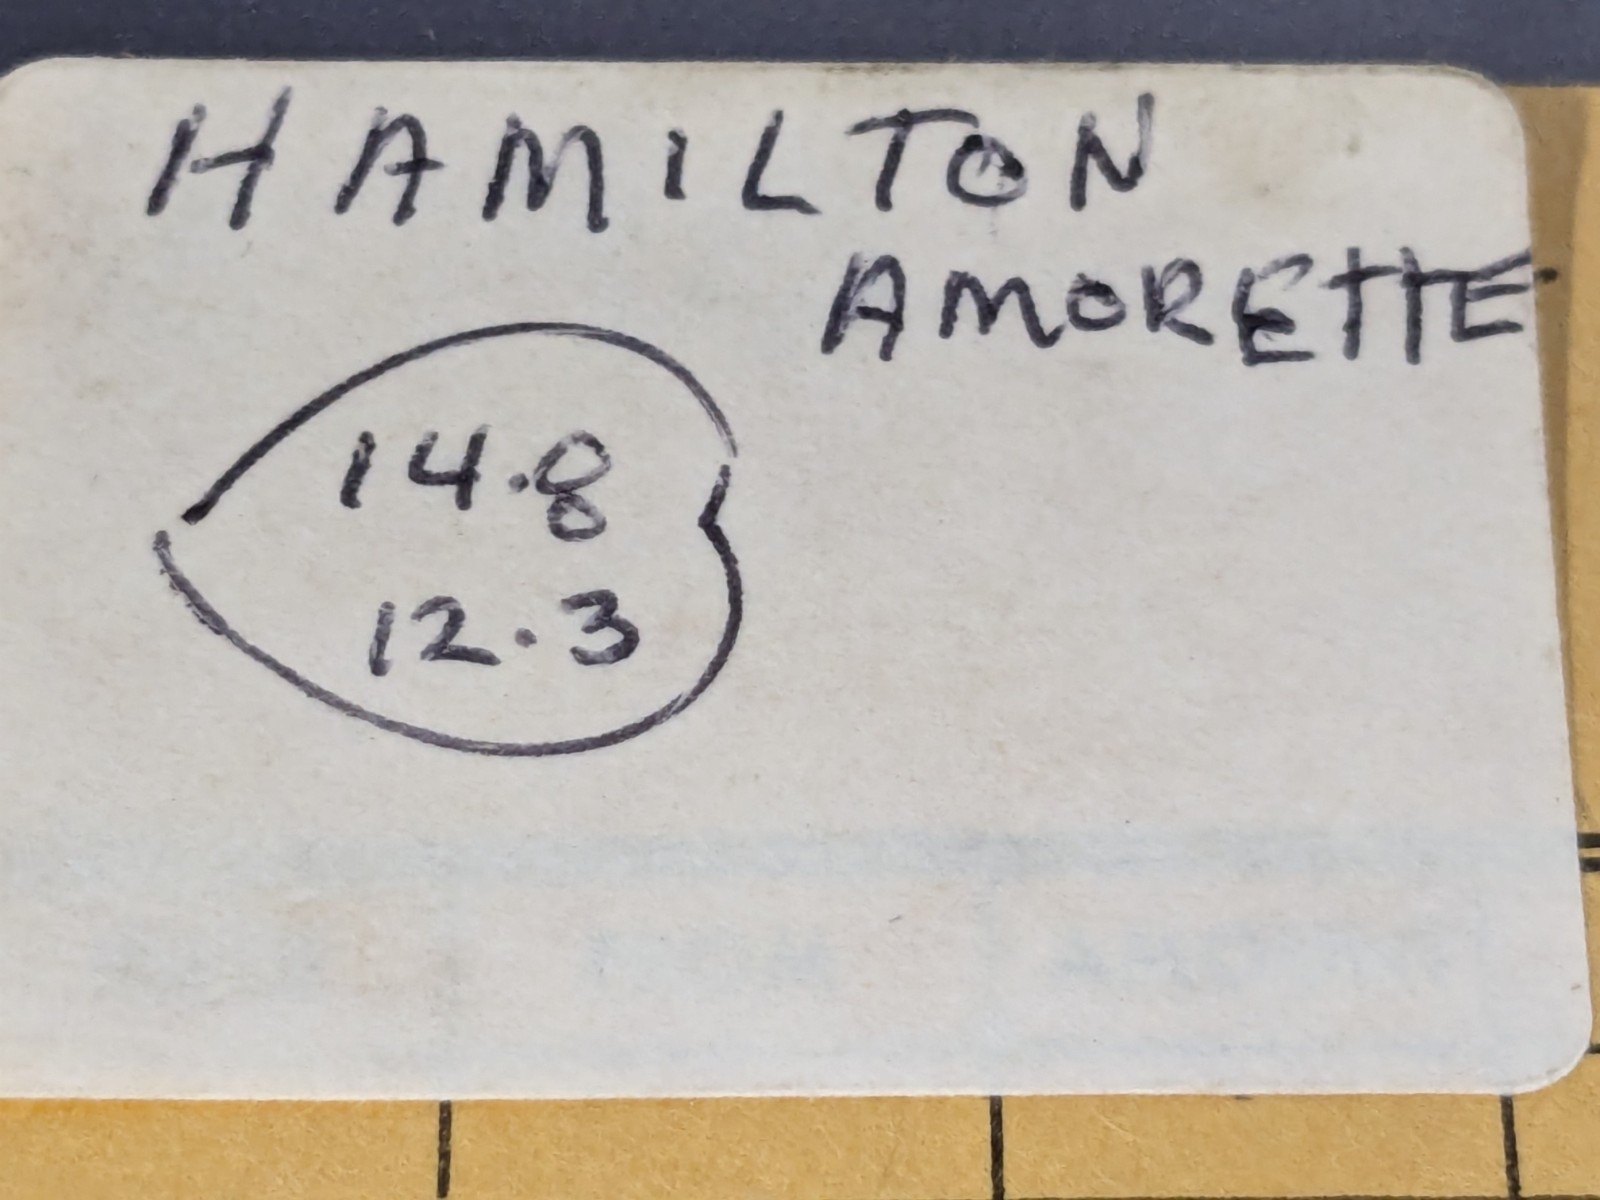 HAMILTON
AMORETTE
14.8
12.3